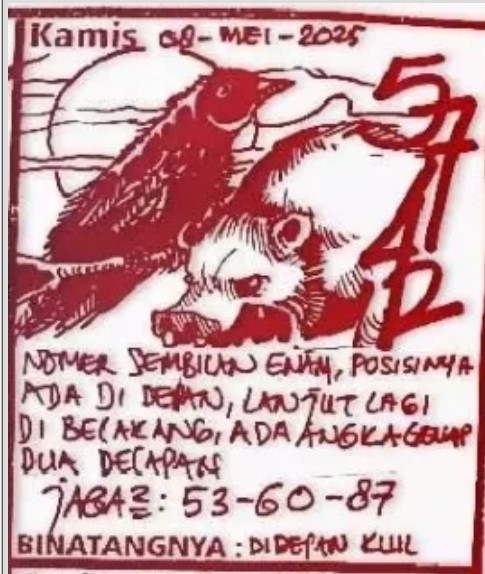 Kamis 08-MEI-2025
5742
NOMER SEMBILAN ENAM, POSISINYA
ADA DI DEPAN, LANJUT LAGI
DI BELAKANG, ADA ANGKA GENAP
DUA DELAPAN
JAGA2: 53-60-87
BINATANGNYA: DIDEPAN